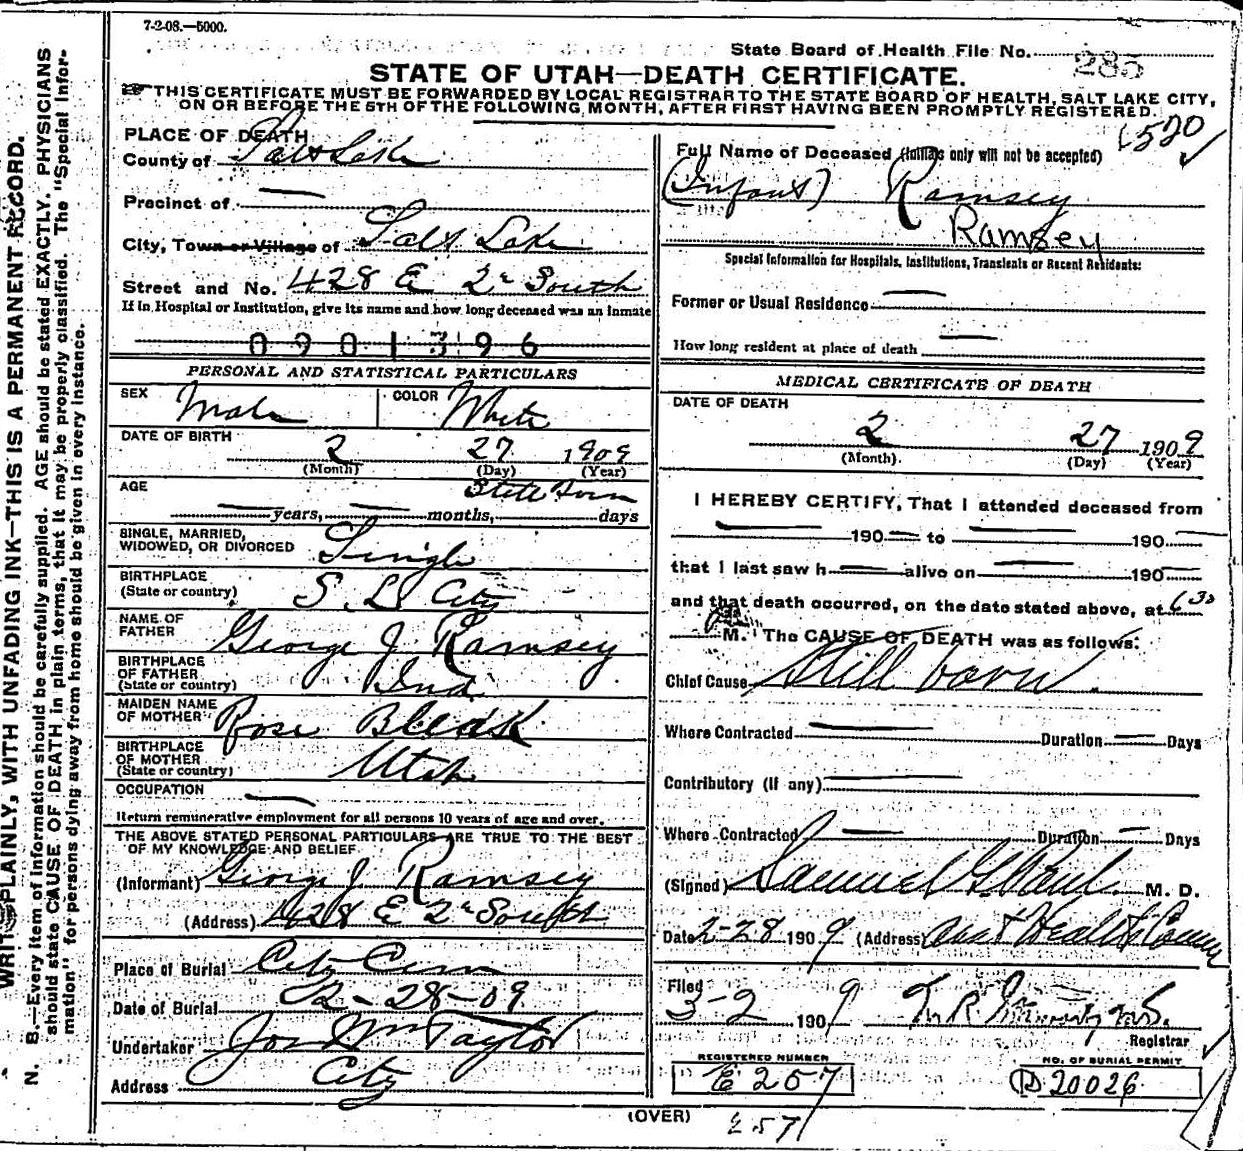 7-2-08.—5000.
State Board of Health File No. 285
STATE OF UTAH—DEATH CERTIFICATE.
THIS CERTIFICATE MUST BE FORWARDED BY LOCAL REGISTRAR TO THE STATE BOARD OF HEALTH, SALT LAKE CITY,
ON OR BEFORE THE 5TH OF THE FOLLOWING MONTH, AFTER FIRST HAVING BEEN PROMPTLY REGISTERED.
WRITE PLAINLY, WITH UNFADING INK—THIS IS A PERMANENT RECORD.
N. B.—Every item of information should be carefully supplied. AGE should be stated EXACTLY. PHYSICIANS
should state CAUSE OF DEATH in plain terms, that it may be properly classified. The "Special Infor-
mation" for persons dying away from home should be given in every instance.
PLACE OF DEATH
County of Salt Lake
Precinct of —
City, Town or Village of Salt Lake
Street and No. 428 E 2d South
If in Hospital or Institution, give its name and how long deceased was an inmate
0901396
PERSONAL AND STATISTICAL PARTICULARS
SEX Male COLOR White
DATE OF BIRTH
2 27 1909
(Month) (Day) (Year)
AGE Still born
— years, — months, days
SINGLE, MARRIED,
WIDOWED, OR DIVORCED Single
BIRTHPLACE
(State or country) S. L. City
NAME OF
FATHER George J Ramsey
BIRTHPLACE
OF FATHER
(State or country) Ind.
MAIDEN NAME
OF MOTHER Rose Bleak
BIRTHPLACE
OF MOTHER
(State or country) Utah
OCCUPATION —
Return remunerative employment for all persons 10 years of age and over.
THE ABOVE STATED PERSONAL PARTICULARS ARE TRUE TO THE BEST
OF MY KNOWLEDGE AND BELIEF
(Informant) George J Ramsey
(Address) 428 E 2d South
Place of Burial City Cem
Date of Burial 2-28-09
Undertaker Jos Wm Taylor
Address City
1520
Full Name of Deceased (Initials only will not be accepted)
(Infant) Ramsey
Ramsey
Special Information for Hospitals, Institutions, Transients or Recent Residents:
Former or Usual Residence —
How long resident at place of death —
MEDICAL CERTIFICATE OF DEATH
DATE OF DEATH
2 27 1909
(Month). (Day) (Year)
I HEREBY CERTIFY, That I attended deceased from
— 190 — to — 190 —
that I last saw h — alive on — 190 —
and that death occurred, on the date stated above, at 630
M. The CAUSE OF DEATH was as follows:
Chief Cause Still born.
Where Contracted — Duration — Days
Contributory (if any) —
Where Contracted — Duration — Days
(Signed) Samuel G. Paul M. D.
Date 2-28 1909 (Address) Asst Health Comm
Filed
3-2 1909
Registrar
REGISTERED NUMBER
E 257
NO. OF BURIAL PERMIT
D 20026
(OVER)
257